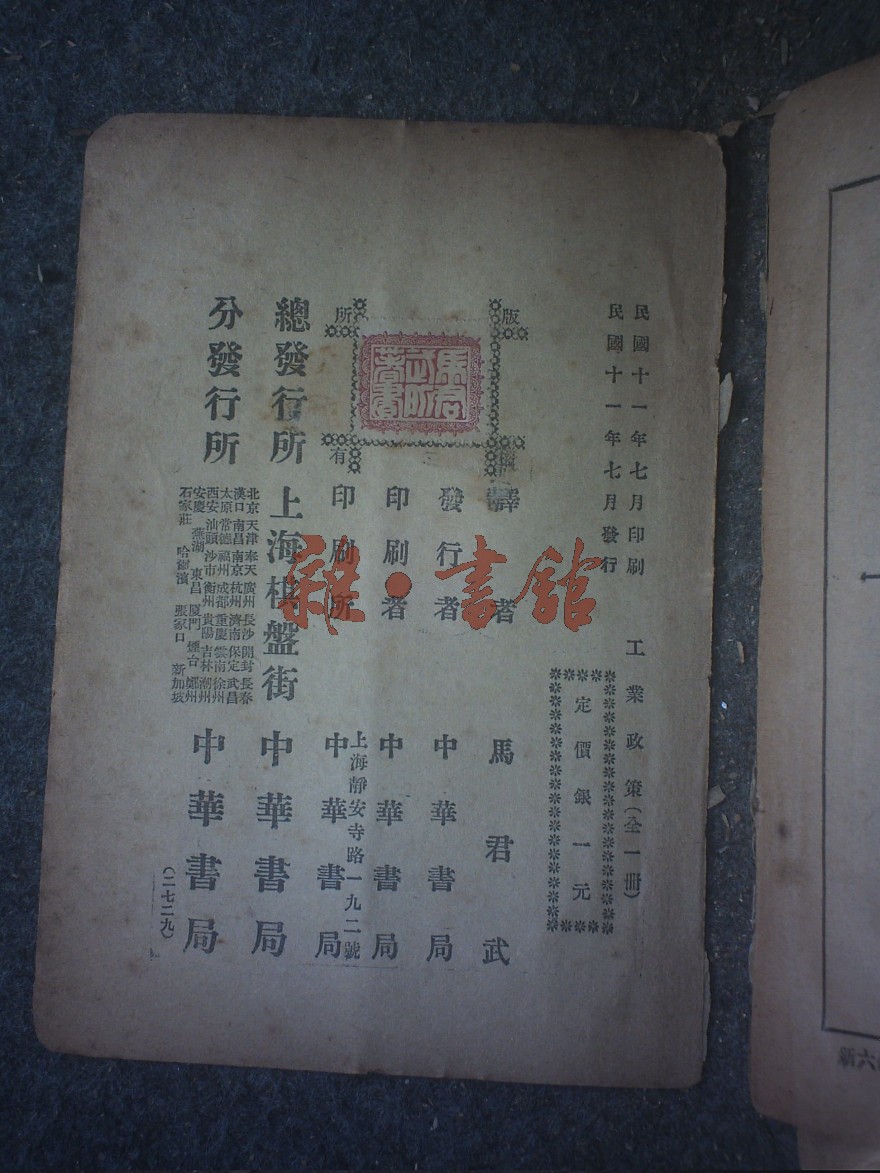 民國十一年七月印刷
民國十一年七月發行
工業政策（全一冊）
定價銀一元
版權所有
馬君武所著書
譯者 馬君武
發行者 中華書局
印刷者 中華書局
上海靜安寺路一九二號
印刷所 中華書局
總發行所 上海棋盤街 中華書局
分發行所
北京 天津 奉天 廣州 長沙 開封 長春
漢口 南昌 南京 杭州 濟南 保定 武昌
太原 常德 福州 成都 重慶 雲南 徐州
西安 汕頭 沙市 衡州 貴陽 吉林 潮州
安慶 蕪湖 東昌 廈門 煙台 鄭州
石家莊 哈爾濱 張家口 新加坡
中華書局
（二七二九）
雜·書館
新六